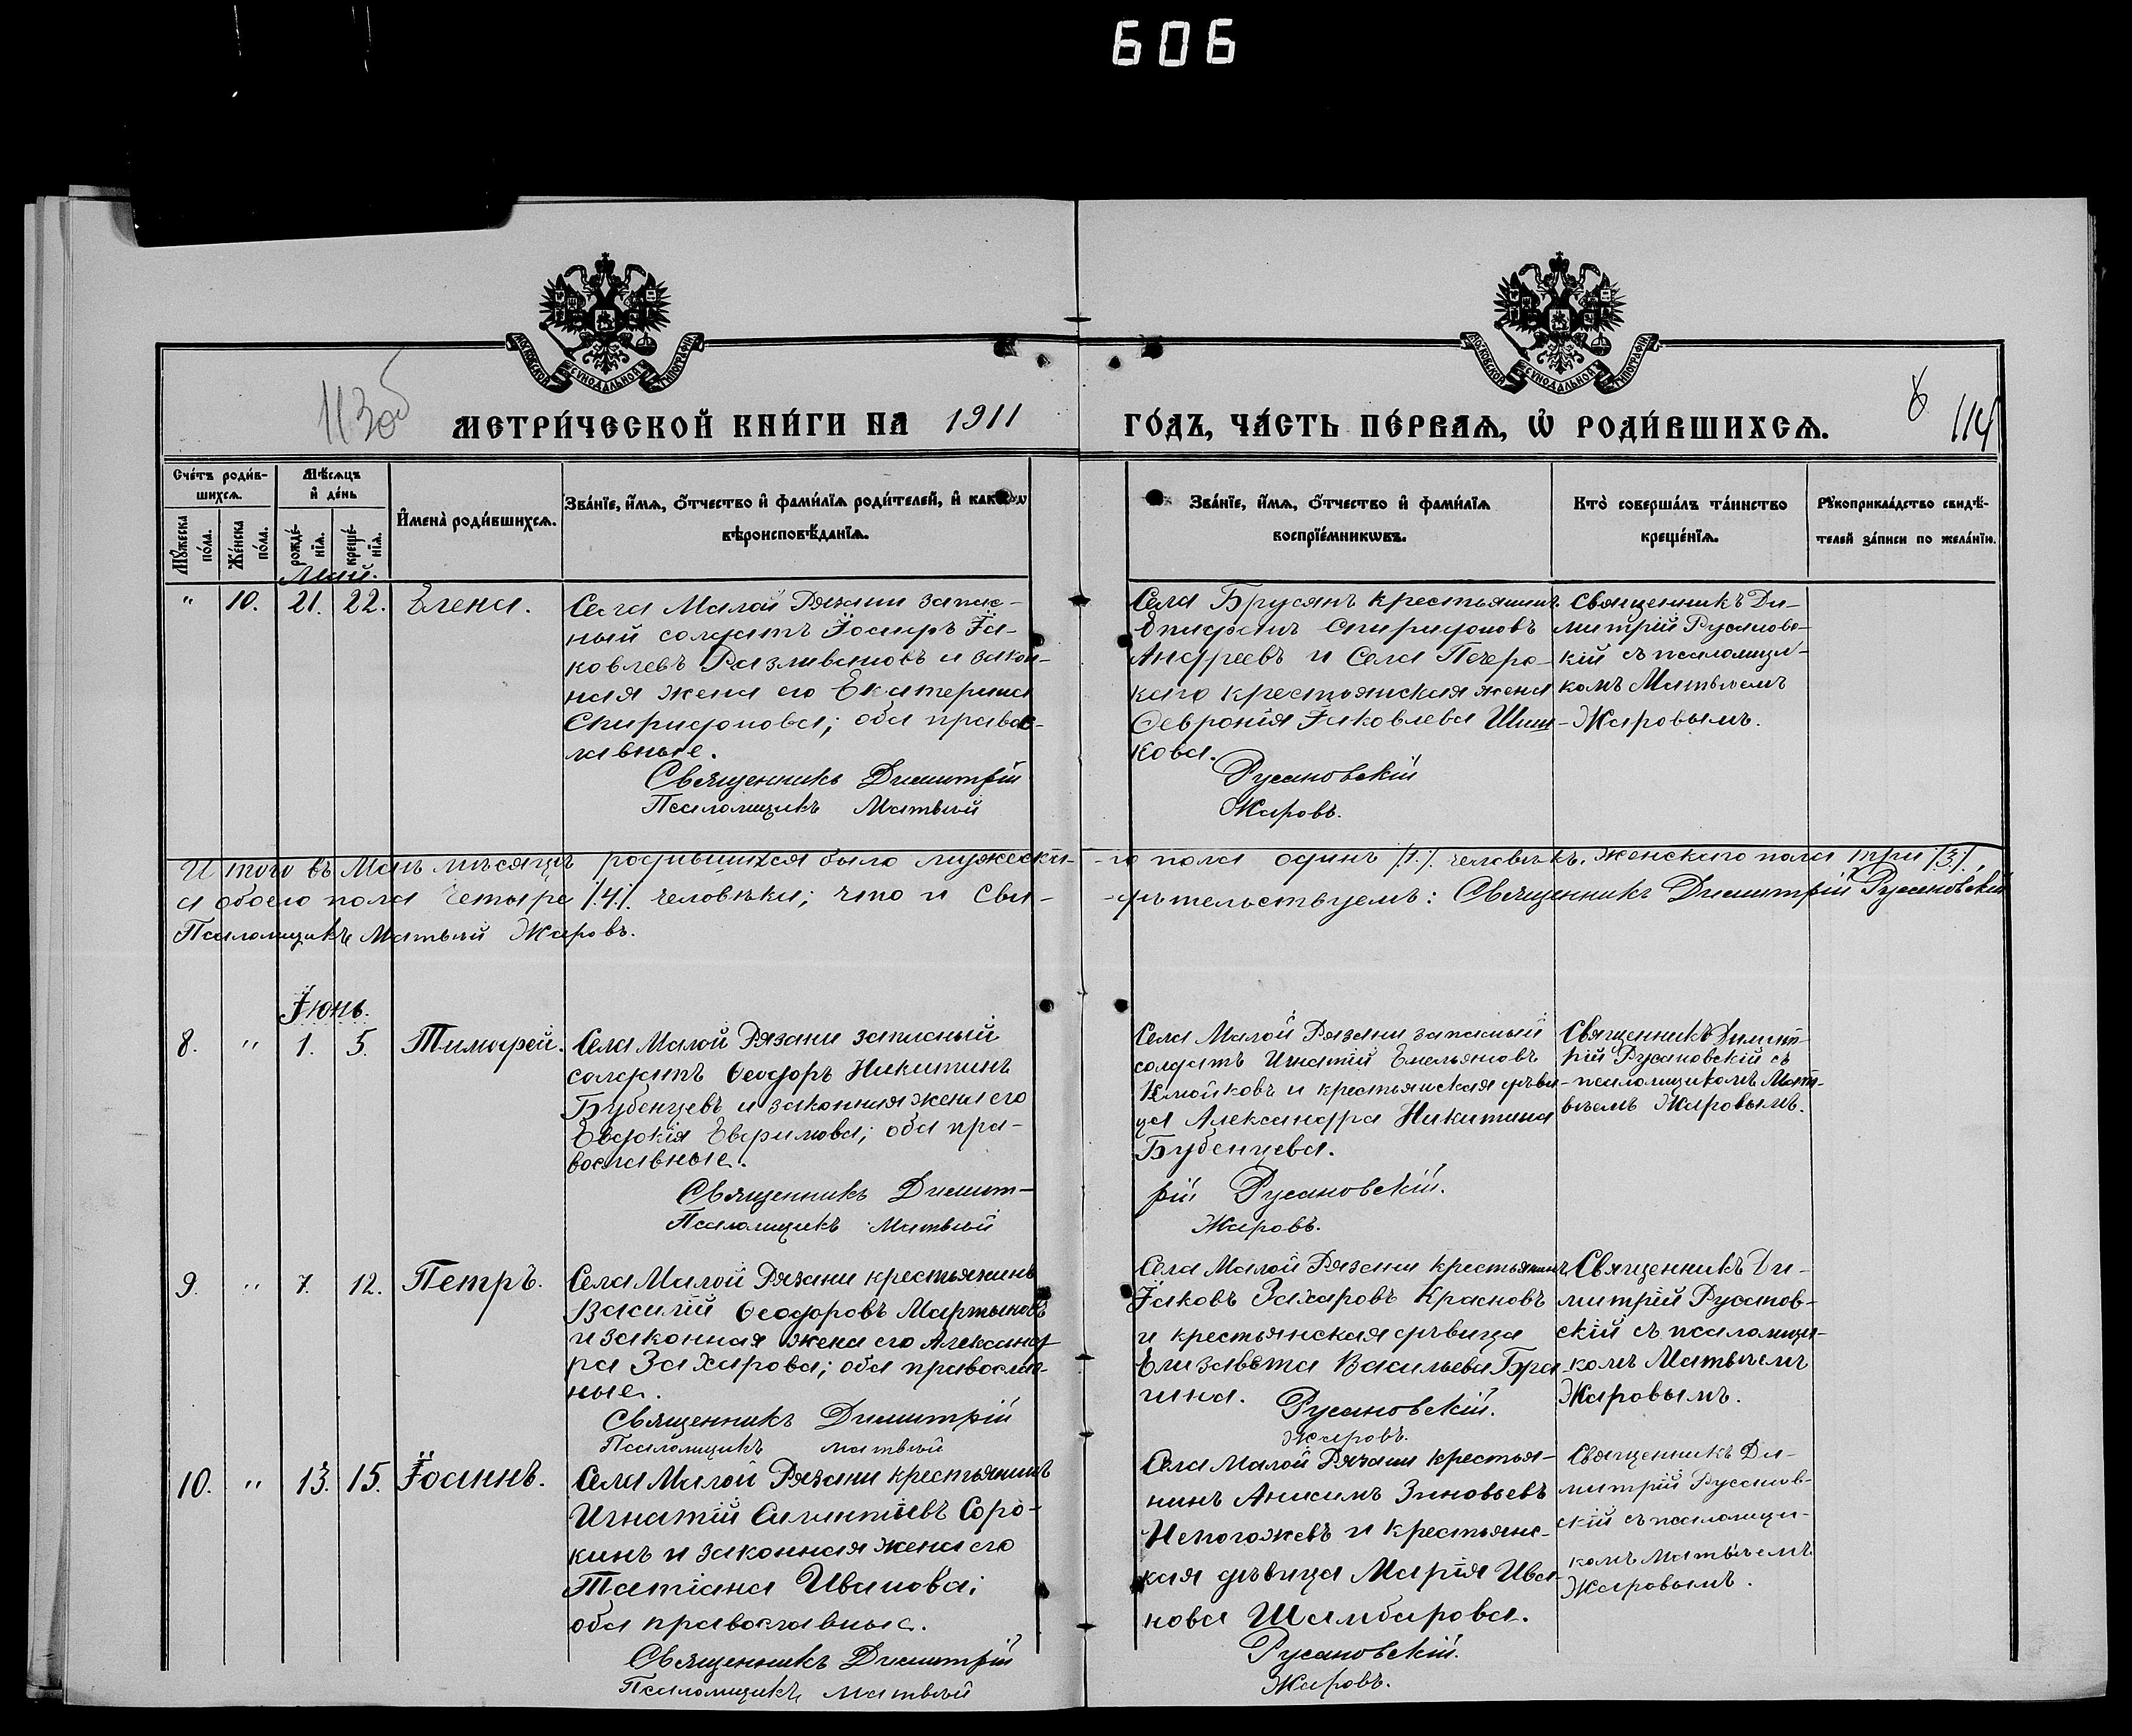 606
МОСКОВСКОЙ СѴНОДАЛЬНОЙ ТИПОГРАФІИ
МОСКОВСКОЙ СѴНОДАЛЬНОЙ ТИПОГРАФІИ
113об
МЕТРИ́ЧЕСКОЙ КНИ́ГИ НА 1911
ГО́ДЪ, ЧА́СТЬ ПЕ́РВАѦ, Ѡ҆ РОДИ́ВШИХСѦ.
8
114
Сче́тъ роди́в-
шихсѧ.
Мѣ́сѧцъ
и҆ де́нь
Мꙋ́жеска
по́ла.
Же́нска
по́ла.
рожде́-
нїѧ.
креще́-
нїѧ.
И҆мена̀ роди́вшихсѧ.
Зва́нїе, и҆́мѧ, ѻ҆́тчество и҆ фами́лїѧ роди́телей, и҆
вѣроисповѣ́данїѧ.
Зва́нїе, и҆́мѧ, ѻ҆́тчество и҆ фами́лїѧ
воспрїе́мникѡвъ.
Кто̀ соверша́лъ та́инство
креще́нїѧ.
Рꙋкоприкла́дство свидѣ́-
телей за́писи по жела́нїю.
Май.
" 10. 21. 22. Елена.
Села Малой Рязани запас-
ный солдатъ Іосифъ Іа-
ковлевъ Разливановъ и закон-
ная жена его Екатерина
Спиридонова; оба правос-
лавные.
Священникъ Димитрій
Псаломщикъ Матвѣй
Села Брусянъ крестьянинъ
Епифанъ Спиридоновъ
Андреевъ и Села Печерс-
каго крестьянская жена
Февронія Іаковлева Шиш-
кова.
Русановскій
Жаровъ.
Священникъ Ди-
митрій Русановс-
кій съ псаломщи-
комъ Матвѣемъ
Жаровымъ.
Итого въ Маѣ мѣсяцѣ родившихся было мужеска-
-го пола одинъ /1./ человѣкъ, женскаго пола три /3/,
а обоего пола четыре /4/ человѣка; что и сви-
-дѣтельствуемъ: Священникъ Димитрій Русановскій
Псаломщикъ Матвѣй Жаровъ.
Іюнь.
8. " 1. 5. Тимофей.
Села Малой Рязани запасный
солдатъ Ѳеодоръ Никитинъ
Бубенцевъ и законная жена его
Евдокія Евфимова; оба пра-
вославные.
Священникъ Димит-
Псаломщикъ Матвѣй
Села Малой Рязани запасный
солдатъ Игнатій Емельяновъ
и крестьянская дѣви-
ца Александра Никитина
Бубенцева.
рій Русановскій.
Жаровъ.
Священникъ Димит-
рій Русановскій съ
псаломщикомъ Мат-
вѣемъ Жаровымъ.
9. " 7. 12. Петръ.
Села Малой Рязани крестьянинъ
Василій Ѳеодоровъ Мартыновъ
и законная жена его Александ-
ра Захарова; оба православ-
ные.
Священникъ Димитрій
Псаломщикъ Матвѣй
Села Малой Рязани крестьянинъ
Іаковъ Захаровъ Красновъ
и крестьянская дѣвица
Елизавета Васильева Бра-
гина.
Русановскій.
Жаровъ.
Священникъ Ди-
митрій Русанов-
скій съ псаломщи-
комъ Матвѣемъ
Жаровымъ.
10. " 13. 15. Іоаннъ.
Села Малой Рязани крестьянинъ
Игнатій Силантіевъ Соро-
кинъ и законная жена его
Татіана Иванова;
оба православные.
Священникъ Димитрій
Псаломщикъ Матвѣй
Села Малой Рязани крестья-
нинъ Анисимъ Зиновьевъ
Непогожевъ и крестьянс-
кая дѣвица Марія Ива-
нова Шамбарова.
Русановскій.
Жаровъ.
Священникъ Ди-
митрій Русанов-
скій съ псаломщи-
комъ Матвѣемъ
Жаровымъ.